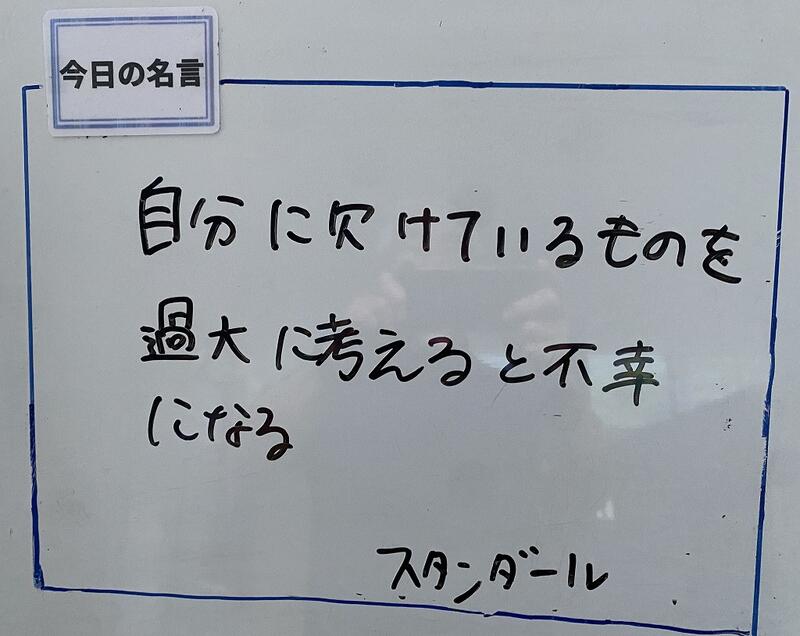 今日の名言
自分に欠けているものを
過大に考えると不幸
になる
スタンダール